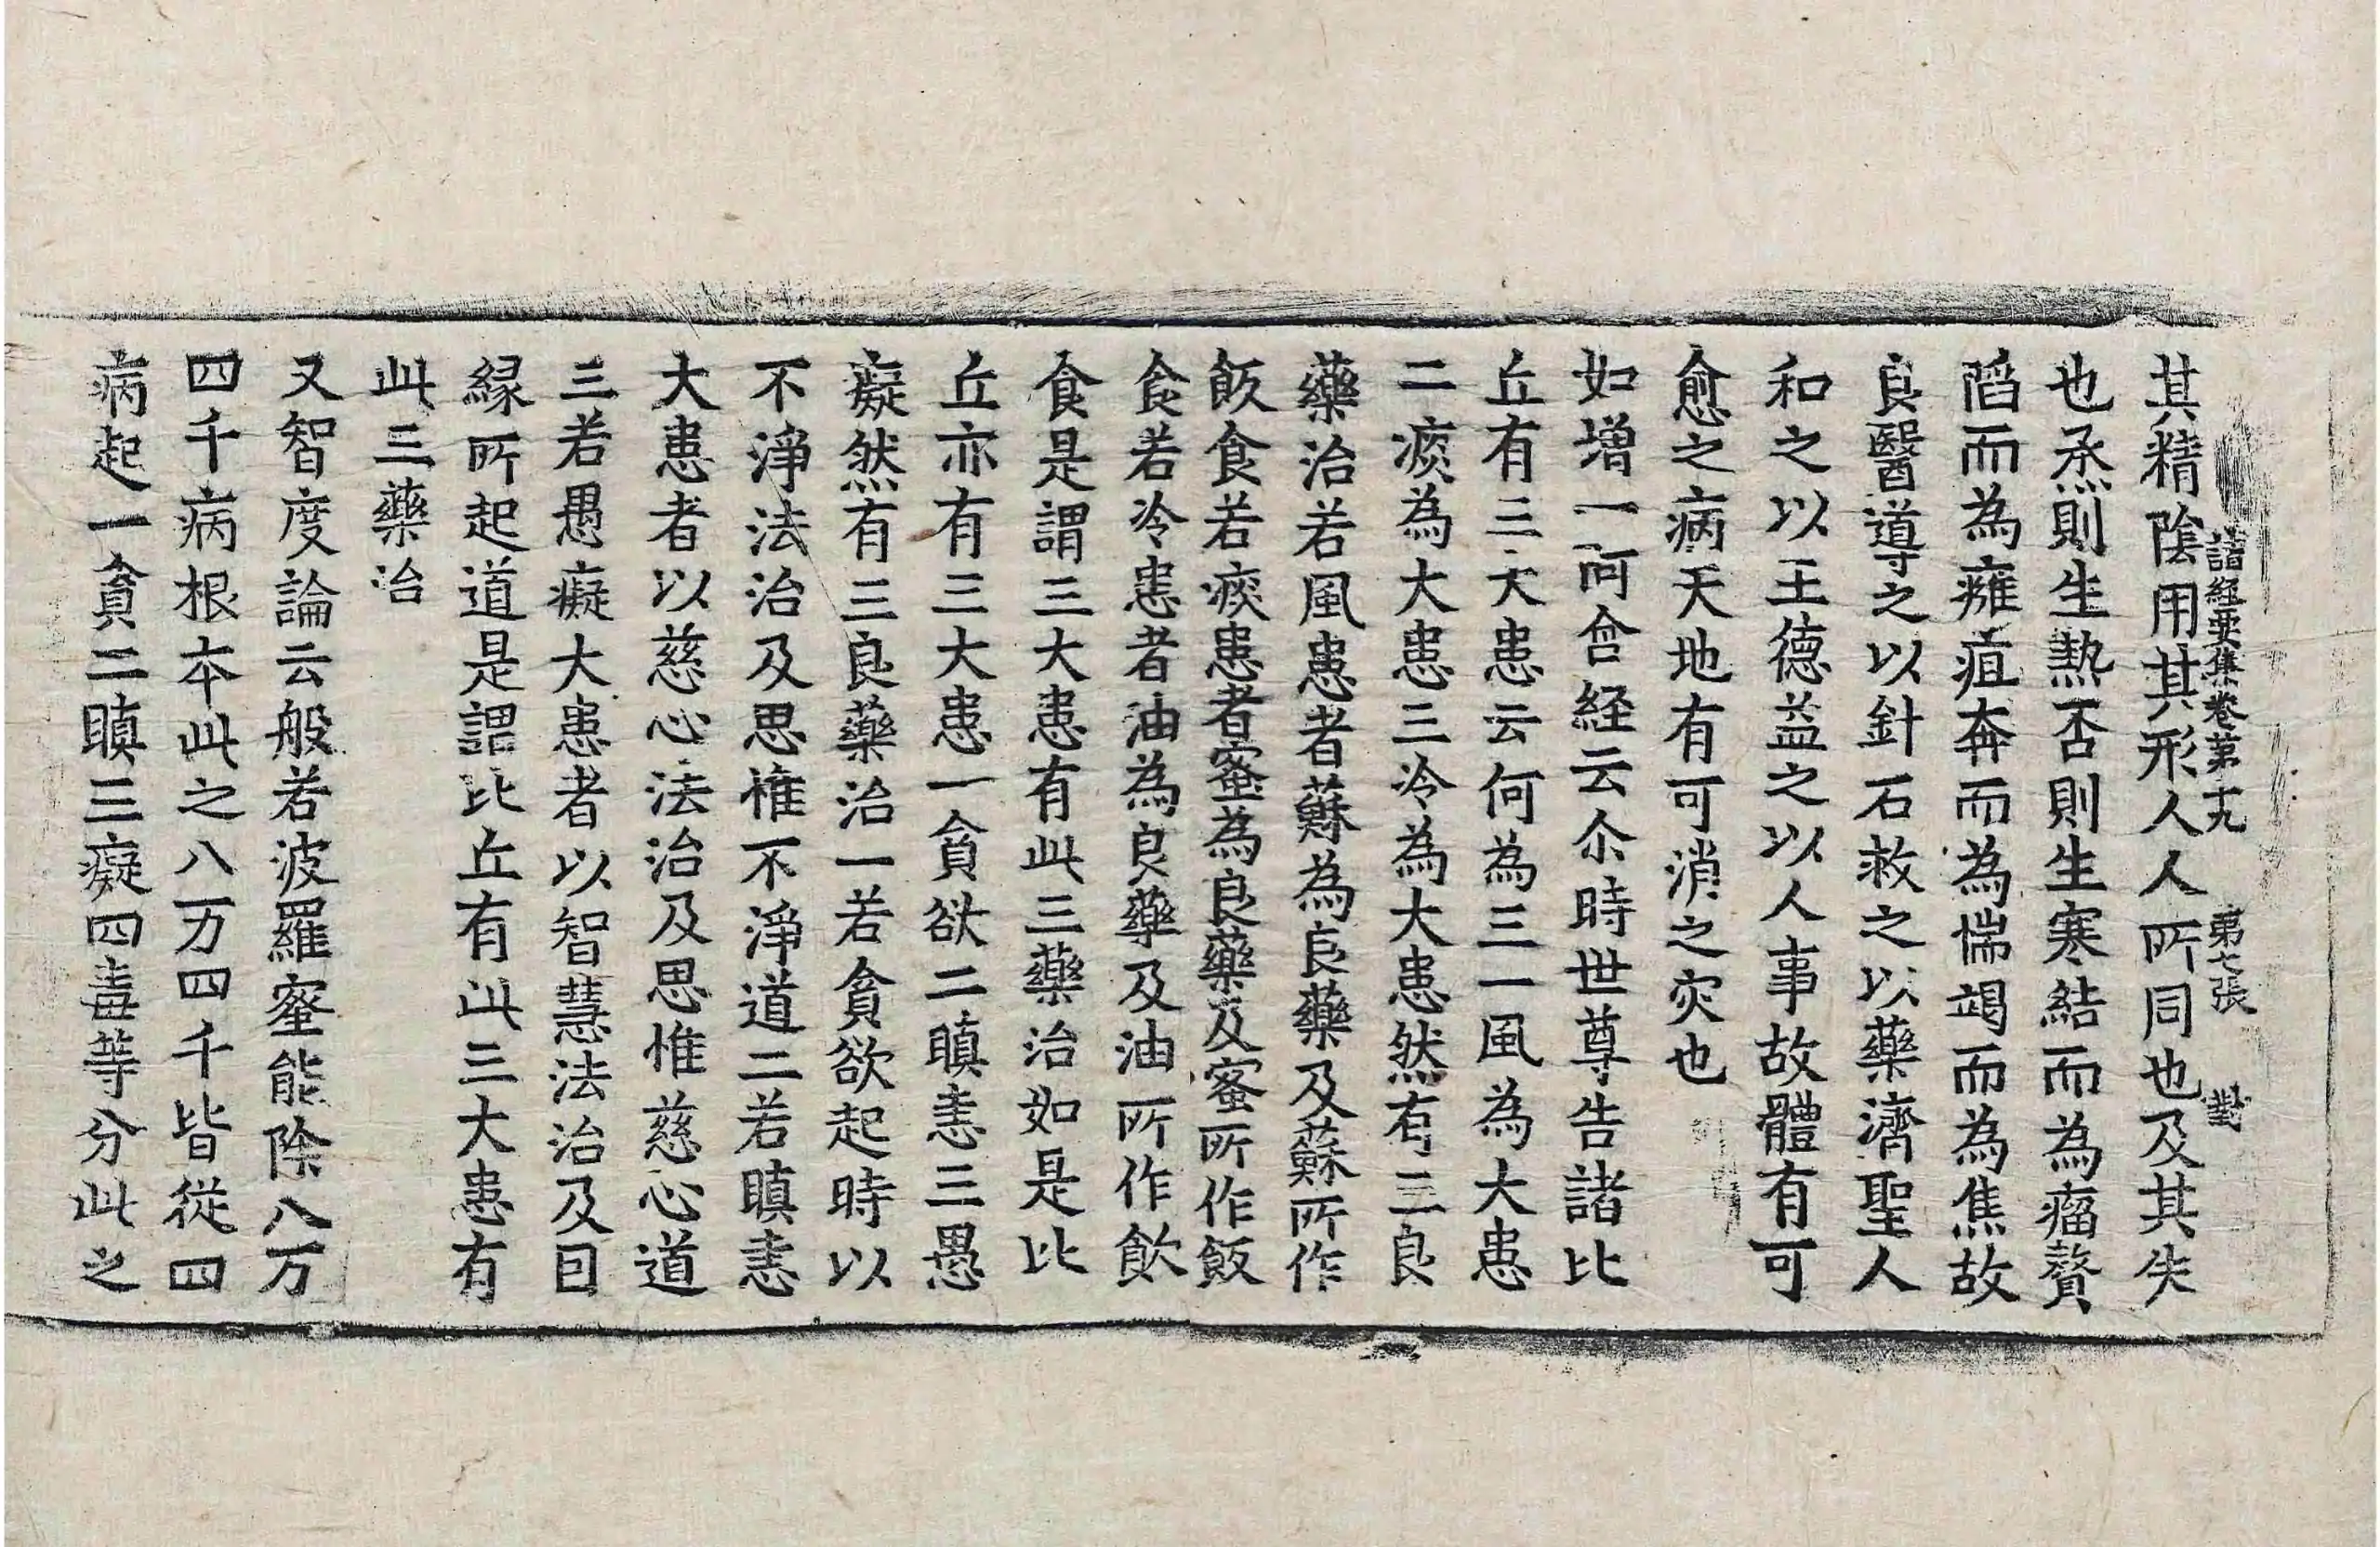 諸経要集卷第十九　第七張　對
其精陰用其形人人所同也及其失
也烝則生熱否則生寒結而為瘤贅
䧟而為癰疽奔而為惴竭而為焦故
良醫導之以針石救之以藥濟聖人
和之以王德益之以人事故體有可
愈之病天地有可消之灾也
如增一阿含経云尒時世尊告諸比
丘有三大患云何為三一風為大患
二痰為大患三冷為大患然有三良
藥治若風患者蘇為良藥及蘇所作
飯食若痰患者蜜為良藥及蜜所作飯
食若冷患者油為良藥及油所作飲
食是謂三大患有此三藥治如是比
丘亦有三大患一貪欲二瞋恚三愚
癡然有三良藥治一若貪欲起時以
不淨法治及思惟不淨道二若瞋恚
大患者以慈心法治及思惟慈心道
三若愚癡大患者以智慧法治及因
緣所起道是謂比丘有此三大患有
此三藥治
又智度論云般若波羅蜜能除八万
四千病根本此之八万四千皆從四
病起一貪二瞋三癡四毒等分此之